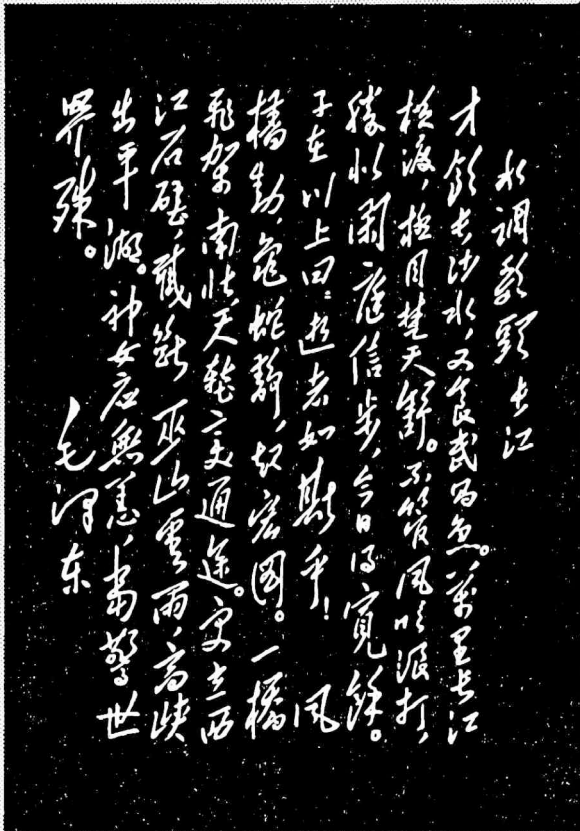 水調歌頭 长江
才飲长沙水,又食武昌鱼。萬里长江
横渡,极目楚天舒。不管风吹浪打,
勝似閑庭信步,今日得寬餘。
子在川上曰:逝者如斯乎! 风
樯動,龟蛇静,起宏图。一橋
飛架南北,天塹变通途。更立西
江石壁,截斷巫山雲雨,高峡
出平湖。神女应無恙,当驚世
界殊。
毛泽东